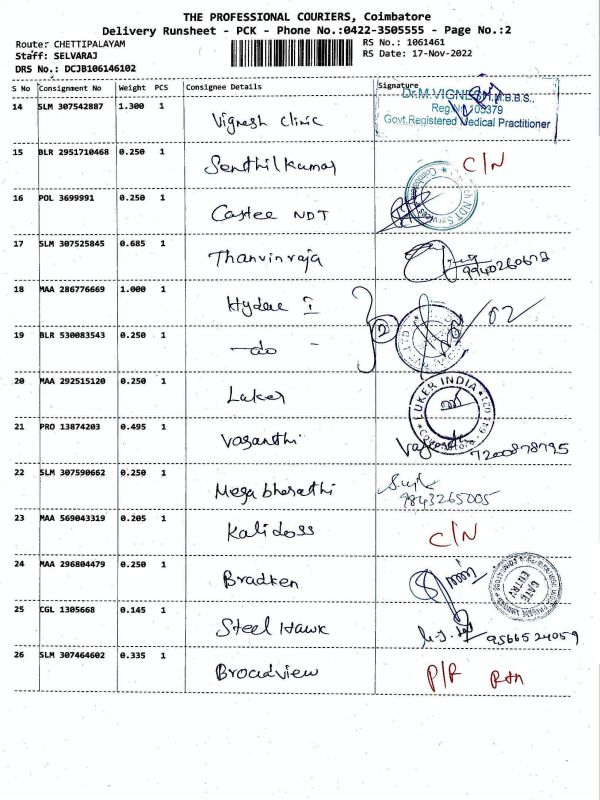 THE PROFESSIONAL COURIERS, Coimbatore
Delivery Runsheet - PCK - Phone No.:0422-3505555 - Page No.:2
Route: CHETTIPALAYAM RS No.: 1061461
Staff: SELVARAJ RS Date: 17-Nov-2022
DRS No.: DCJB106146102
S No Consignment No Weight PCS Consignee Details Signature
14 SLM 307542887 1.300 1 Vignesh clinic
Dr.M.VIGNESH,M.B.B.S.,
Reg.No:109379
Govt.Registered Medical Practitioner
15 BLR 2951710468 0.250 1 Senthilkumar C/N
16 POL 3699991 0.250 1 Castee NDT
17 SLM 307525845 0.685 1 Thanvinraja 9940260678
18 MAA 286776669 1.000 1 Hydac I
19 BLR 530083543 0.250 1 -do- 2 / 02
20 MAA 292515120 0.250 1 Luker LUKER INDIA
21 PRO 13874203 0.495 1 vasanthi 7200878795
22 SLM 307590662 0.250 1 Megabharathi 9843265005
23 MAA 569043319 0.205 1 Kalidoss C/N
24 MAA 296804479 0.250 1 Bradken GATE ENTRY
25 CGL 1305668 0.145 1 Steel Hawk 9566524059
26 SLM 307464602 0.335 1 Broadview P/R Rtn